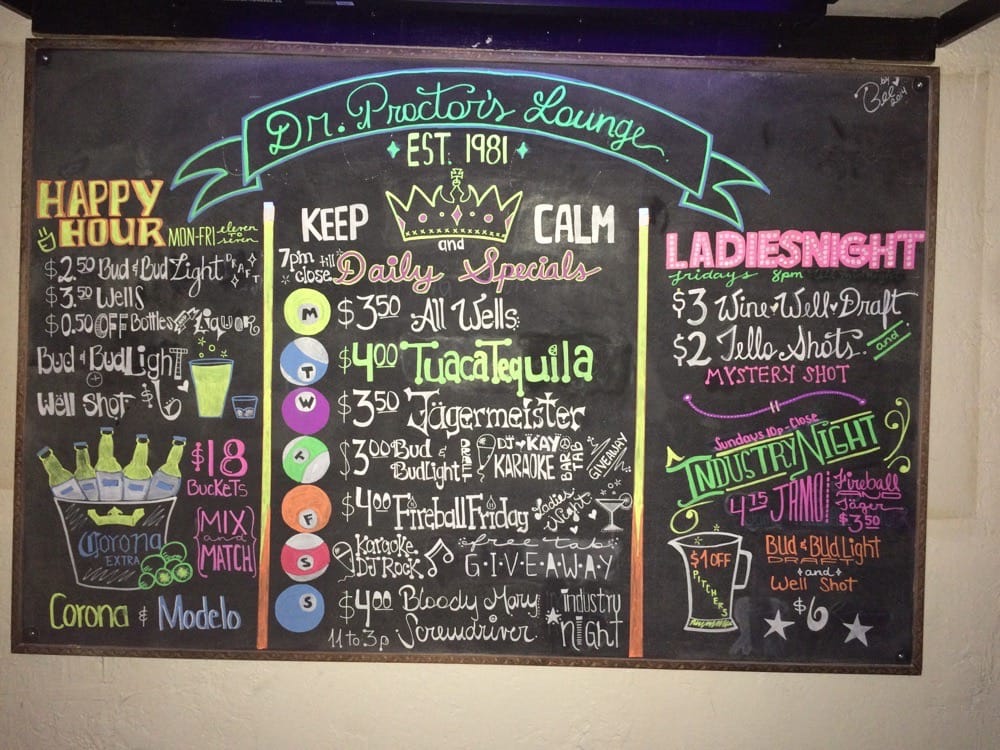 by
Bee
2014
Dr. Proctor's Lounge
EST. 1981
HAPPY
HOUR MON-FRI eleven TO seven
$2.50 Bud & Bud Light DRAFT
$3.50 Wells
$0.50 OFF Bottles Liquor
Bud & Bud Light
Well Shot $6
$18
Buckets
{MIX
and
MATCH}
Corona
EXTRA
Corona & Modelo
KEEP and CALM
7pm till close Daily Specials
M $3.50 All Wells
T $4.00 Tuaca Tequila
W $3.50 Jägermeister
T $3.00 Bud & Bud Light DRAFT DJ KAY KARAOKE BAR TAB GIVEAWAY
F $4.00 Fireball Friday Ladies Night
S Karaoke DJ Rock free tab G·I·V·E·A·W·A·Y
S $4.00 Bloody Mary Screwdriver industry night
11 to 3p
LADIESNIGHT
fridays 8pm
$3 Wine Well Draft
$2 Jello Shots. and
MYSTERY SHOT
Sundays 10p-Close
INDUSTRY NIGHT
4.75 JAMO
Fireball
AND
Jäger
$3.50
$1 OFF
PITCHERS
Bud & Bud Light
DRAFT
and
Well Shot
$6